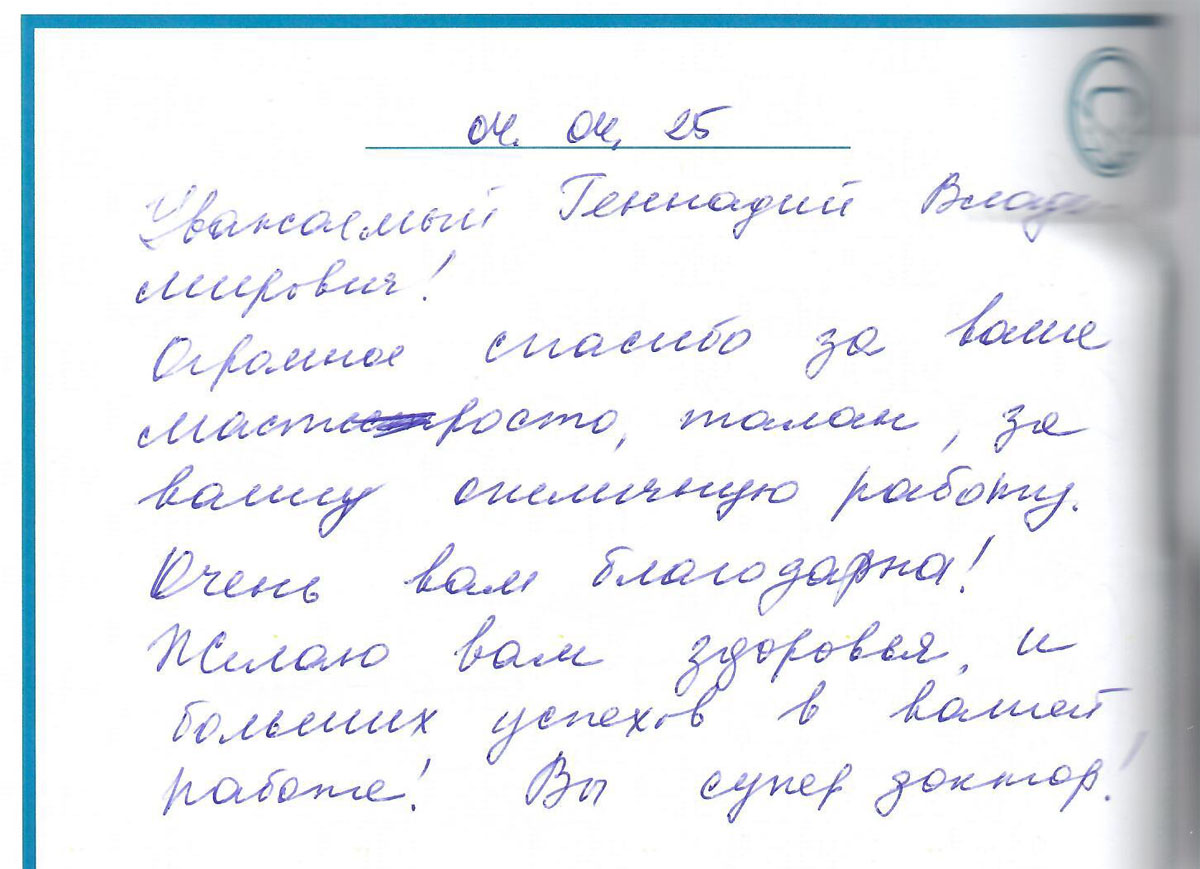 04. 04. 25
Уважаемый Геннадий Влади-
мирович!
Огромное спасибо за ваше
росто, талан, за
вашу отличную работу.
Очень вам благодарна!
Желаю вам здоровья, и
больших успехов в вашей
работе! Вы супер доктор!